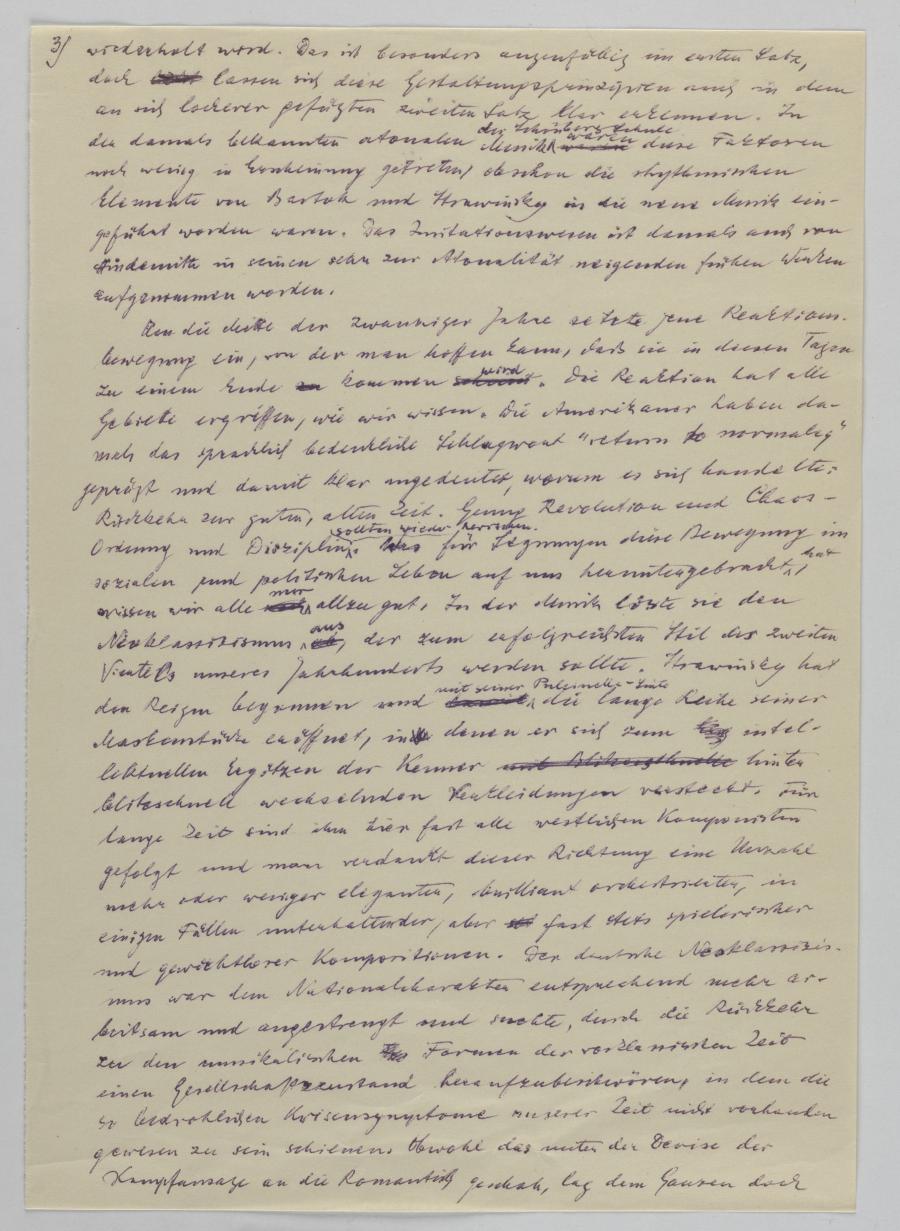 3) wiederholt wird. Das ist besonders augenfällig im ersten Satz,
doch lassen sich diese Gestaltungsprinzipien auch in dem
an sich lockerer gefügten zweiten Satz klar erkennen. In
der Schönberg-Schule
der damals bekannten atonalen Musik waren diese Faktoren
noch wenig in Erscheinung getreten, obschon die rhythmischen
Elemente von Bartok und Strawinsky in die neue Musik ein-
geführt worden waren. Das Imitationswesen ist damals auch von
Hindemith in seinen sehr zur Atonalität neigenden frühen Werken
aufgenommen worden.
Um die Mitte der zwanziger Jahre setzte jene Reaktions-
bewegung ein, von der man hoffen kann, daß sie in diesen Tagen
zu einem Ende kommen wird. Die Reaktion hat alle
Gebiete ergriffen, wie wir wissen. Die Amerikaner haben da-
mals das sprachlich bedenkliche Schlagwort "return to normalcy"
geprägt und damit klar angedeutet, worum es sich handelte:
Rückkehr zur guten, alten Zeit. Genug Revolution und Chaos -
sollten wieder herrschen.
Ordnung und Disziplin. Was für Segnungen diese Bewegung im
sozialen und politischen Leben auf uns heruntergebracht hat,
wissen wir alle nur allzu gut. In der Musik löste sie den
Neoklassizismus aus, der zum erfolgreichsten Stil des zweiten
Viertels unseres Jahrhunderts werden sollte. Strawinsky hat
mit seiner Pulcinella-Suite
den Reigen begonnen und die lange Reihe seiner
Maskenstücke eröffnet, in denen er sich zum intel-
lektuellen Ergötzen der Kenner hinter
blitzschnell wechselnden Verkleidungen versteckt. Für
lange Zeit sind ihm hier fast alle westlichen Komponisten
gefolgt und man verdankt dieser Richtung eine Unzahl
mehr oder weniger eleganter, brilliant orchestrierter, in
einigen Fällen unterhaltender, aber fast stets spielerischer
und gewichtloser Kompositionen. Der deutsche Neoklassizis-
mus war dem Nationalcharakter entsprechend mehr ar-
beitsam und angestrengt und suchte, durch die Rückkehr
zu den musikalischen Formen der vorklassischen Zeit
einen Gesellschaftszustand heraufzubeschwören, in dem die
so bedrohlichen Krisensymptome unserer Zeit nicht vorhanden
gewesen zu sein schienen. Obwohl das unter der Devise der
Kampfansage an die Romantik geschah, lag dem Ganzen doch